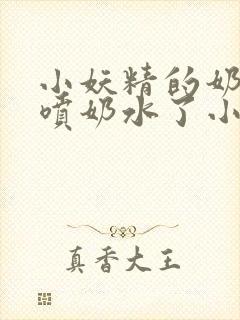 小妖精的奶
喷奶水了小
真香大王